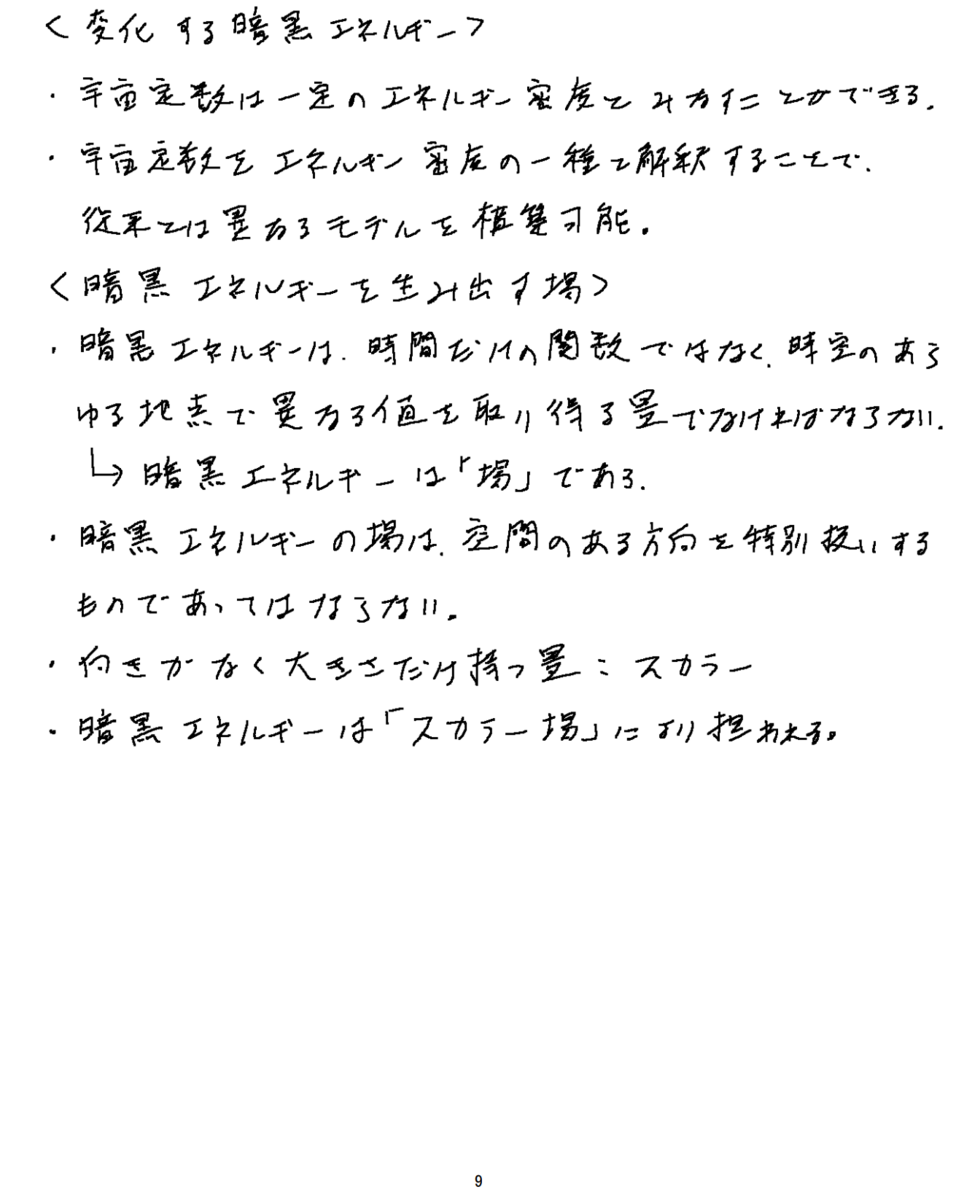 <変化する暗黒エネルギー>
・宇宙定数は一定のエネルギー密度とみなすことができる.
・宇宙定数をエネルギー密度の一種と解釈することで.
従来とは異なるモデルを構築可能。
<暗黒エネルギーを生み出す場>
・暗黒エネルギーは.時間だけの関数ではなく.時空のあら
ゆる地点で異なる値を取り得る量でなければならない.
↳暗黒エネルギーは「場」である.
・暗黒エネルギーの場は.空間のある方向を特別扱いする
ものであってはならない。
・向きがなく大きさだけ持つ量:スカラー
・暗黒エネルギーは「スカラー場」により担われる。
9